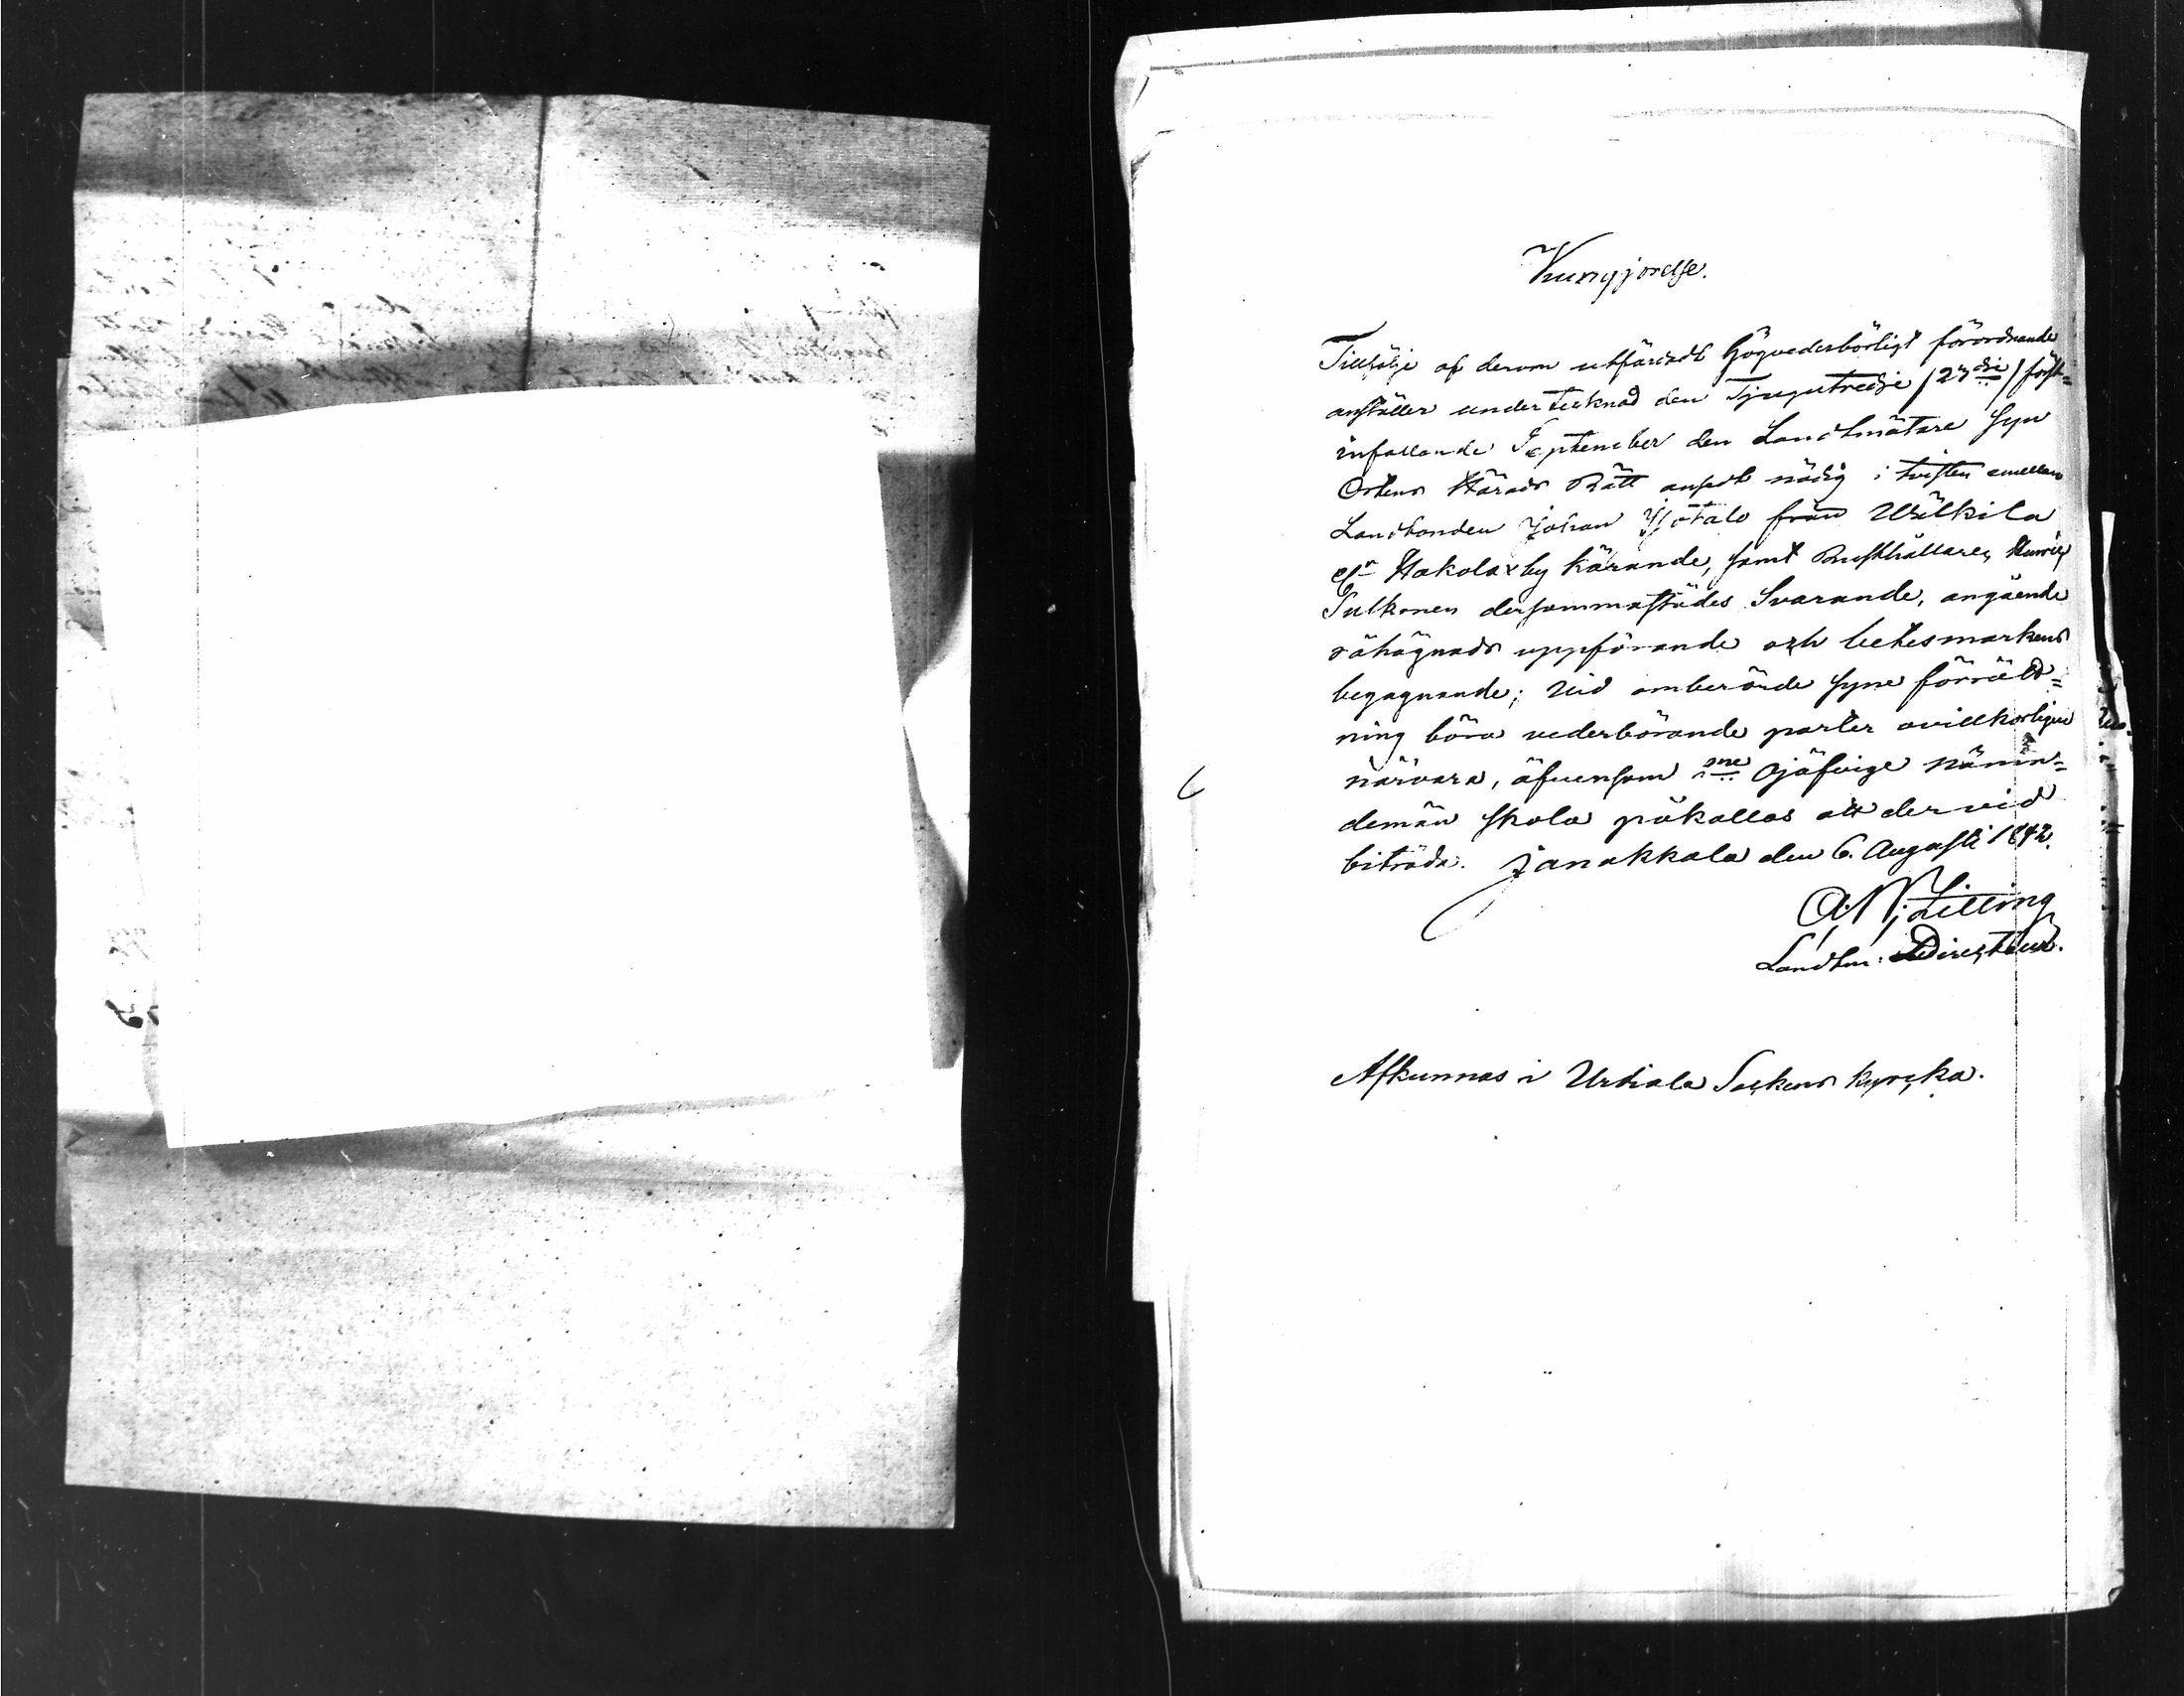 Kungjörelse.
Tillfölje af derom utfärdadt högvederbörligt förordnande
anställer undertecknad den Tjugutredje /23dje/ först=
infallande September den Landtmätare syn
Ortens Härads Rätt ansedt nödig i tvisten emellan
Landbonden Johan Isotalo från Wälkilä
och Hakola by kärande, samt Rusthållaren Henric
Pulkonen dersammastädes Svarande, angående
råhägnads uppförande och betesmarkens
begagnande; Vid omberörde syne förrätt=
ning böra vederbörande parter ovillkorligen
närvara, äfvensom ojäfvige nämn=
demän skola påkallas att dervid
biträda. Janakkala den 6. Augusti 1842.
Landtm: Directeur.
Afkunnas i Urdiala Sockens kyrcka.